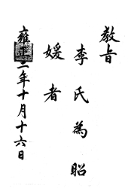 教旨
李氏為昭
媛者
雍正二年十月十六日